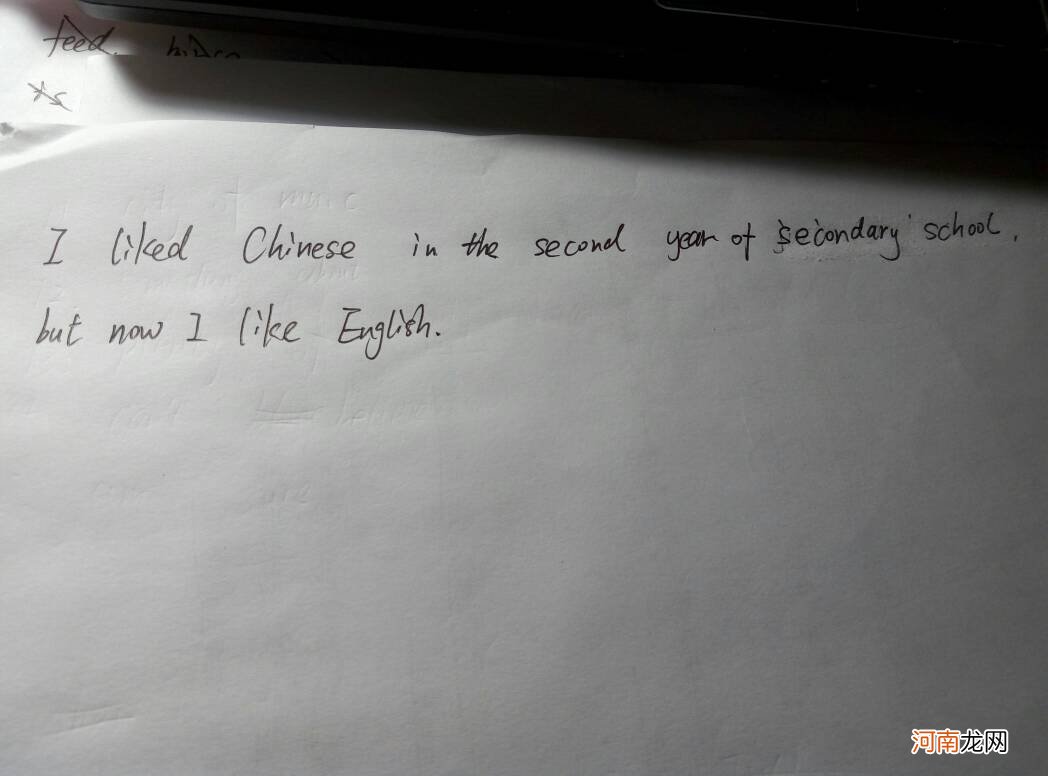 feed.
I liked Chinese in the second year of secondary school,
but now I like English.
河南龙网